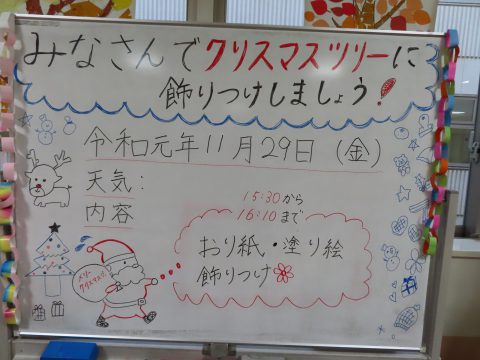 みなさんでクリスマスツリーに
飾りつけしましょう!
令和元年11月29日(金)
天気:
内容
15:30から
16:10まで
おり紙・塗り絵
飾りつけ
メリー
クリスマス